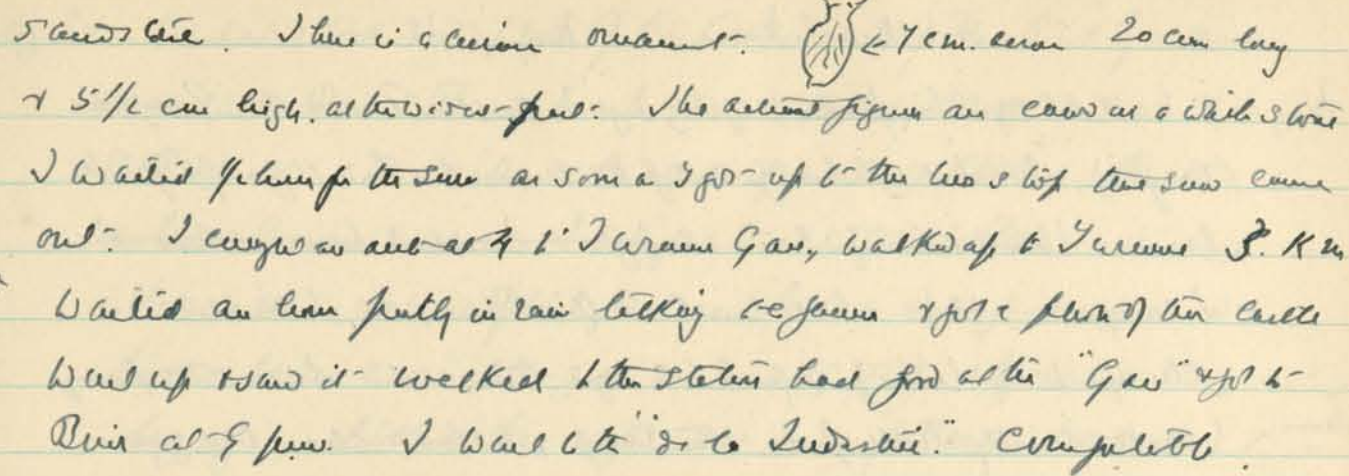 sandstone. There is a curious ornament. ← 7 cm. across 20 cm long
& 5 1/2 cm high. at the widest part. The actual figures are carved in a white stone
I waited 1/2 hour for the sun as soon as I got up to the top the sun came
out. I caught an at 4 to Gare, walked up to 3. Km
Waited an hour partly in rain talking to & got a photo of the castle
Went up & saw it walked to the station had food at the "Gare" & got to
at 9 pm. I went to the "de la Industrie." Comfortable